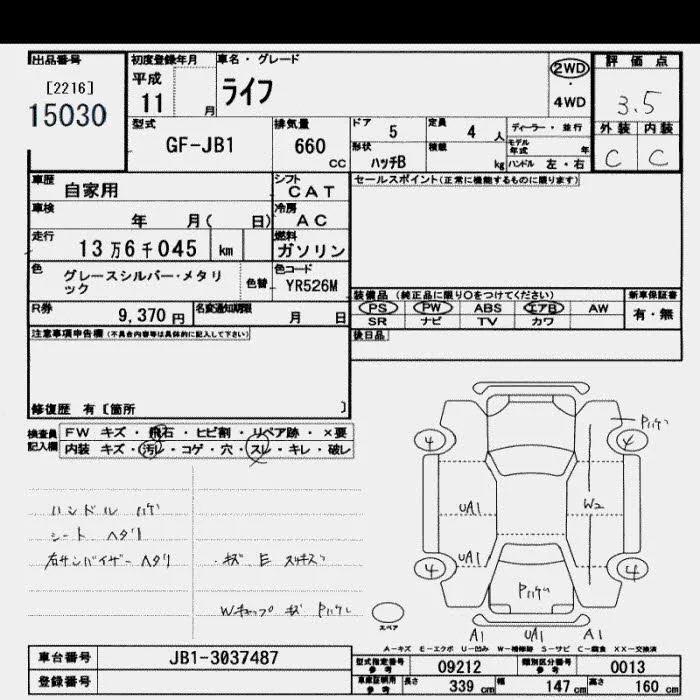 出品番号
[2216]
15030
初度登録年月
平成
11 月
車名・グレード
ライフ
2WD
・
4WD
評価点
3.5
外装 内装
C C
型式
GF-JB1
排気量
660
CC
ドア
5
定員
4 人
ディーラー・並行
形状
ハッチB
積載
kg
モデル年式 年
ハンドル 左・右
車歴
自家用
シフト
CAT
セールスポイント(正常に機能するものに限ります)
車検
年 月( 日)
冷房
AC
走行
13万6千045 km
燃料
ガソリン
色
グレースシルバー・メタリ
ック
色替
色コード
YR526M
装備品 (純正品に限り○をつけてください)
新車保証書
PS PW ABS エアB AW
有・無
SR ナビ TV カワ
R券
9,370 円
名変通知期限
月 日
後日品
注意事項申告欄(不具合内容等は具体的に記入して下さい)
修復歴 有〔箇所 〕
検査員
記入欄
FW キズ・飛石・ヒビ割・リペア跡・×要
内装 キズ・汚レ・コゲ・穴・スレ・キレ・破レ
ハンドル ハゲ
シート ヘタリ
右サンバイザー ヘタリ
・キズ E スリキズ
Wキャップ キズ
4
4
4
4
UA1
UA1
W2
A1
UA1
A1
スペア
A-キズ E-エクボ U-凹み W-補修跡 S-サビ C-腐食 XX-交換済
車台番号
JB1-3037487
型式指定番号
参考
09212
類別区分番号
参考
0013
登録番号
車庫証明用
参考
長さ
339 cm
幅
147 cm
高さ
160 cm